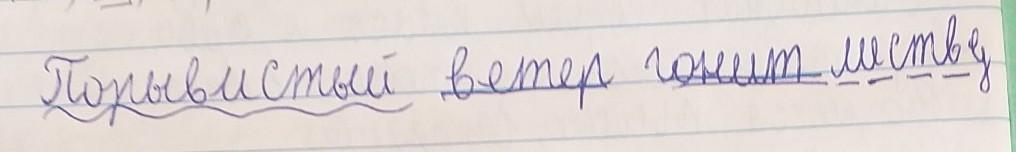 Порывистый ветер гонит листву